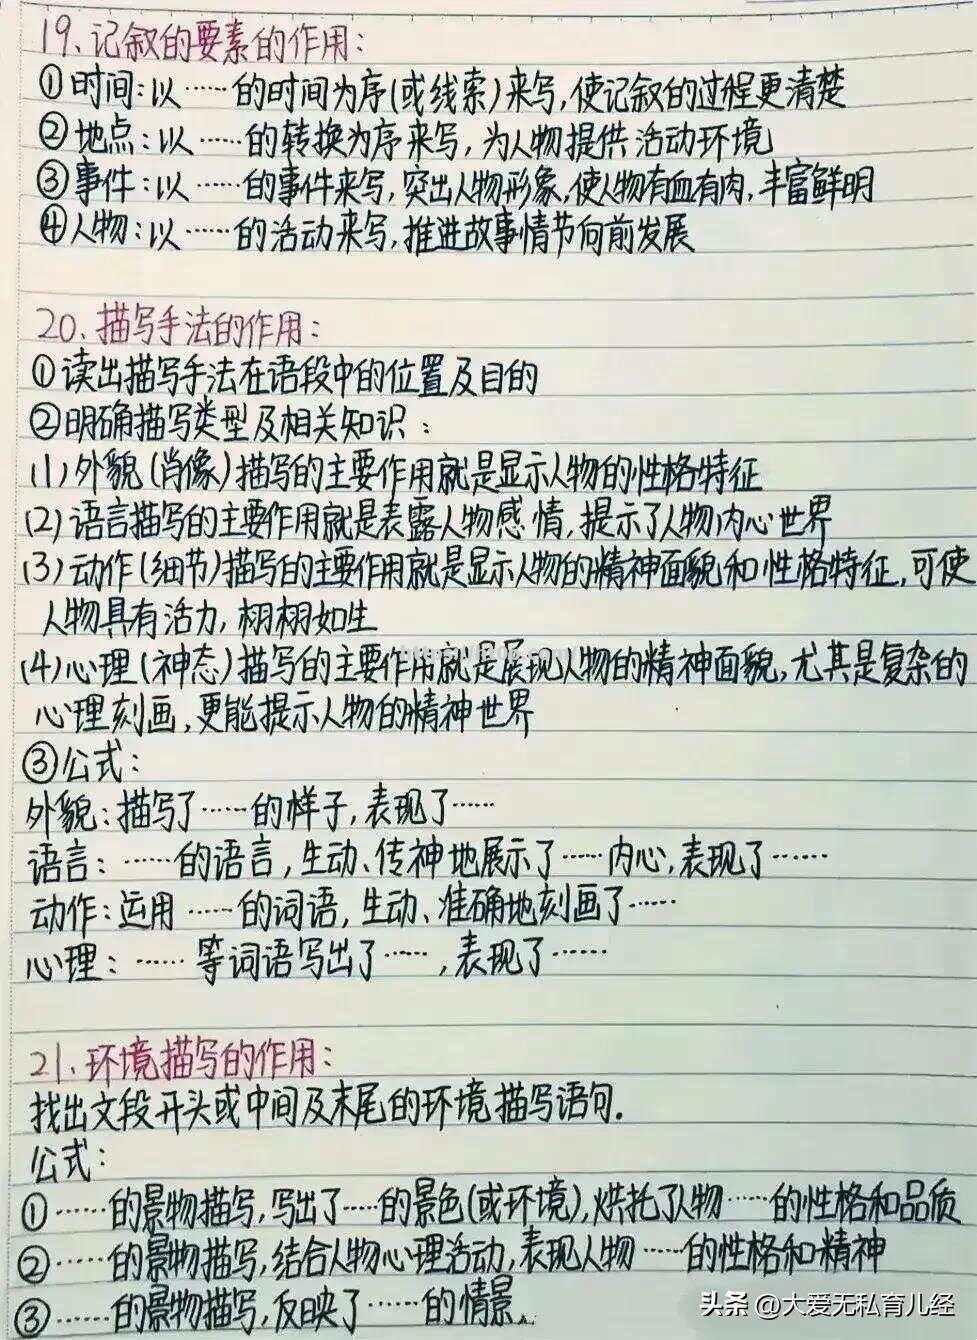 19、记叙的要素的作用：
①时间：以……的时间为序（或线索）来写，使记叙的过程更清楚
②地点：以……的转换为序来写，为人物提供活动环境
③事件：以……的事件来写，突出人物形象，使人物有血有肉，丰富鲜明
④人物：以……的活动来写，推进故事情节向前发展
20、描写手法的作用：
①读出描写手法在语段中的位置及目的
②明确描写类型及相关知识：
(1)外貌（肖像）描写的主要作用就是显示人物的性格特征
(2)语言描写的主要作用就是表露人物感情，提示了人物内心世界
(3)动作（细节）描写的主要作用就是显示人物的精神面貌和性格特征，可使
人物具有活力，栩栩如生
(4)心理（神态）描写的主要作用就是展现人物的精神面貌，尤其是复杂的
心理刻画，更能提示人物的精神世界
③公式：
外貌：描写了……的样子，表现了……
语言：……的语言，生动、传神地展示了……内心，表现了……
动作：运用……的词语，生动、准确地刻画了……
心理：……等词语写出了……，表现了……
21、环境描写的作用：
找出文段开头或中间及末尾的环境描写语句.
公式：
①……的景物描写，写出了……的景色（或环境），烘托了人物……的性格和品质
②……的景物描写，结合人物心理活动，表现人物……的性格和精神
③……的景物描写，反映了……的情景.
头条 @大爱无私育儿经